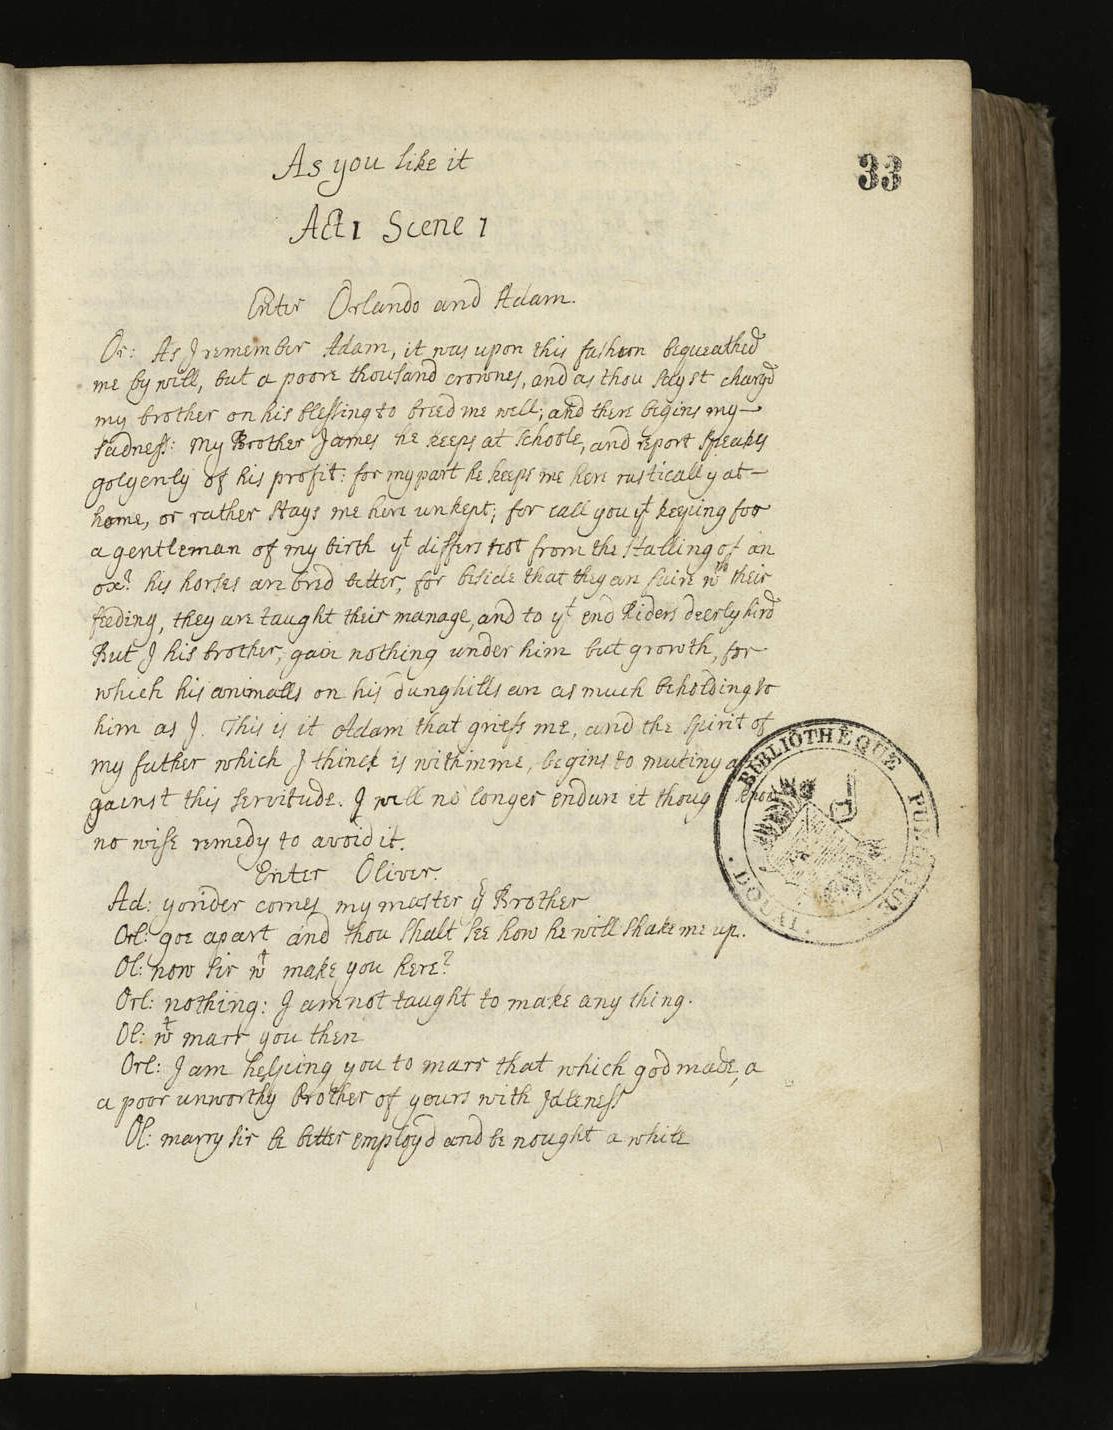 As you like it
33
Act 1 Scene 1
Enter Orlando and Adam.
Or: As J remember Adam, it was upon this fashion bequeathed
me by will, but a poore thousand crownes, and as thou sayst chargd
my brother on his blessing to breed me well; and there begins my
sadness: My Brother James he keeps at schoole, and report speakes
golgenly of his profit: for my part he keeps me here rustically at
home, or rather stays me here unkept; for call you yt keeping for
a gentleman of my birth yt differs not from the stalling of an
ox? his horses are bred better, for beside that they are faire wth their
feeding, they are taught their manage, and to yt end Riders deerly hird
But J his brother, gain nothing under him but growth, for
which his animalls on his dunghills are as much beholding to
him as J. This is it Adam that griefs me, and the spirit of
my father which J thinck is within me, begins to mutiny a
gainst this servitude. J will no longer endure it thoug know
no wise remedy to avoid it.
Enter Oliver.
Ad: yonder comes my master yr Brother
Orl: goe apart and thou shalt see how he will shake me up.
Ol: now sir wt make you here?
Orl: nothing: J am not taught to make any thing.
Ol: wt marr you then
Orl: J am helping you to marr that which god made, a
a poor unworthy Brother of yours with Jdleness
Ol: marry sir be better employd and be nought a while
BIBLIOTHÈQUE PUBLIQUE
· DOUAI ·